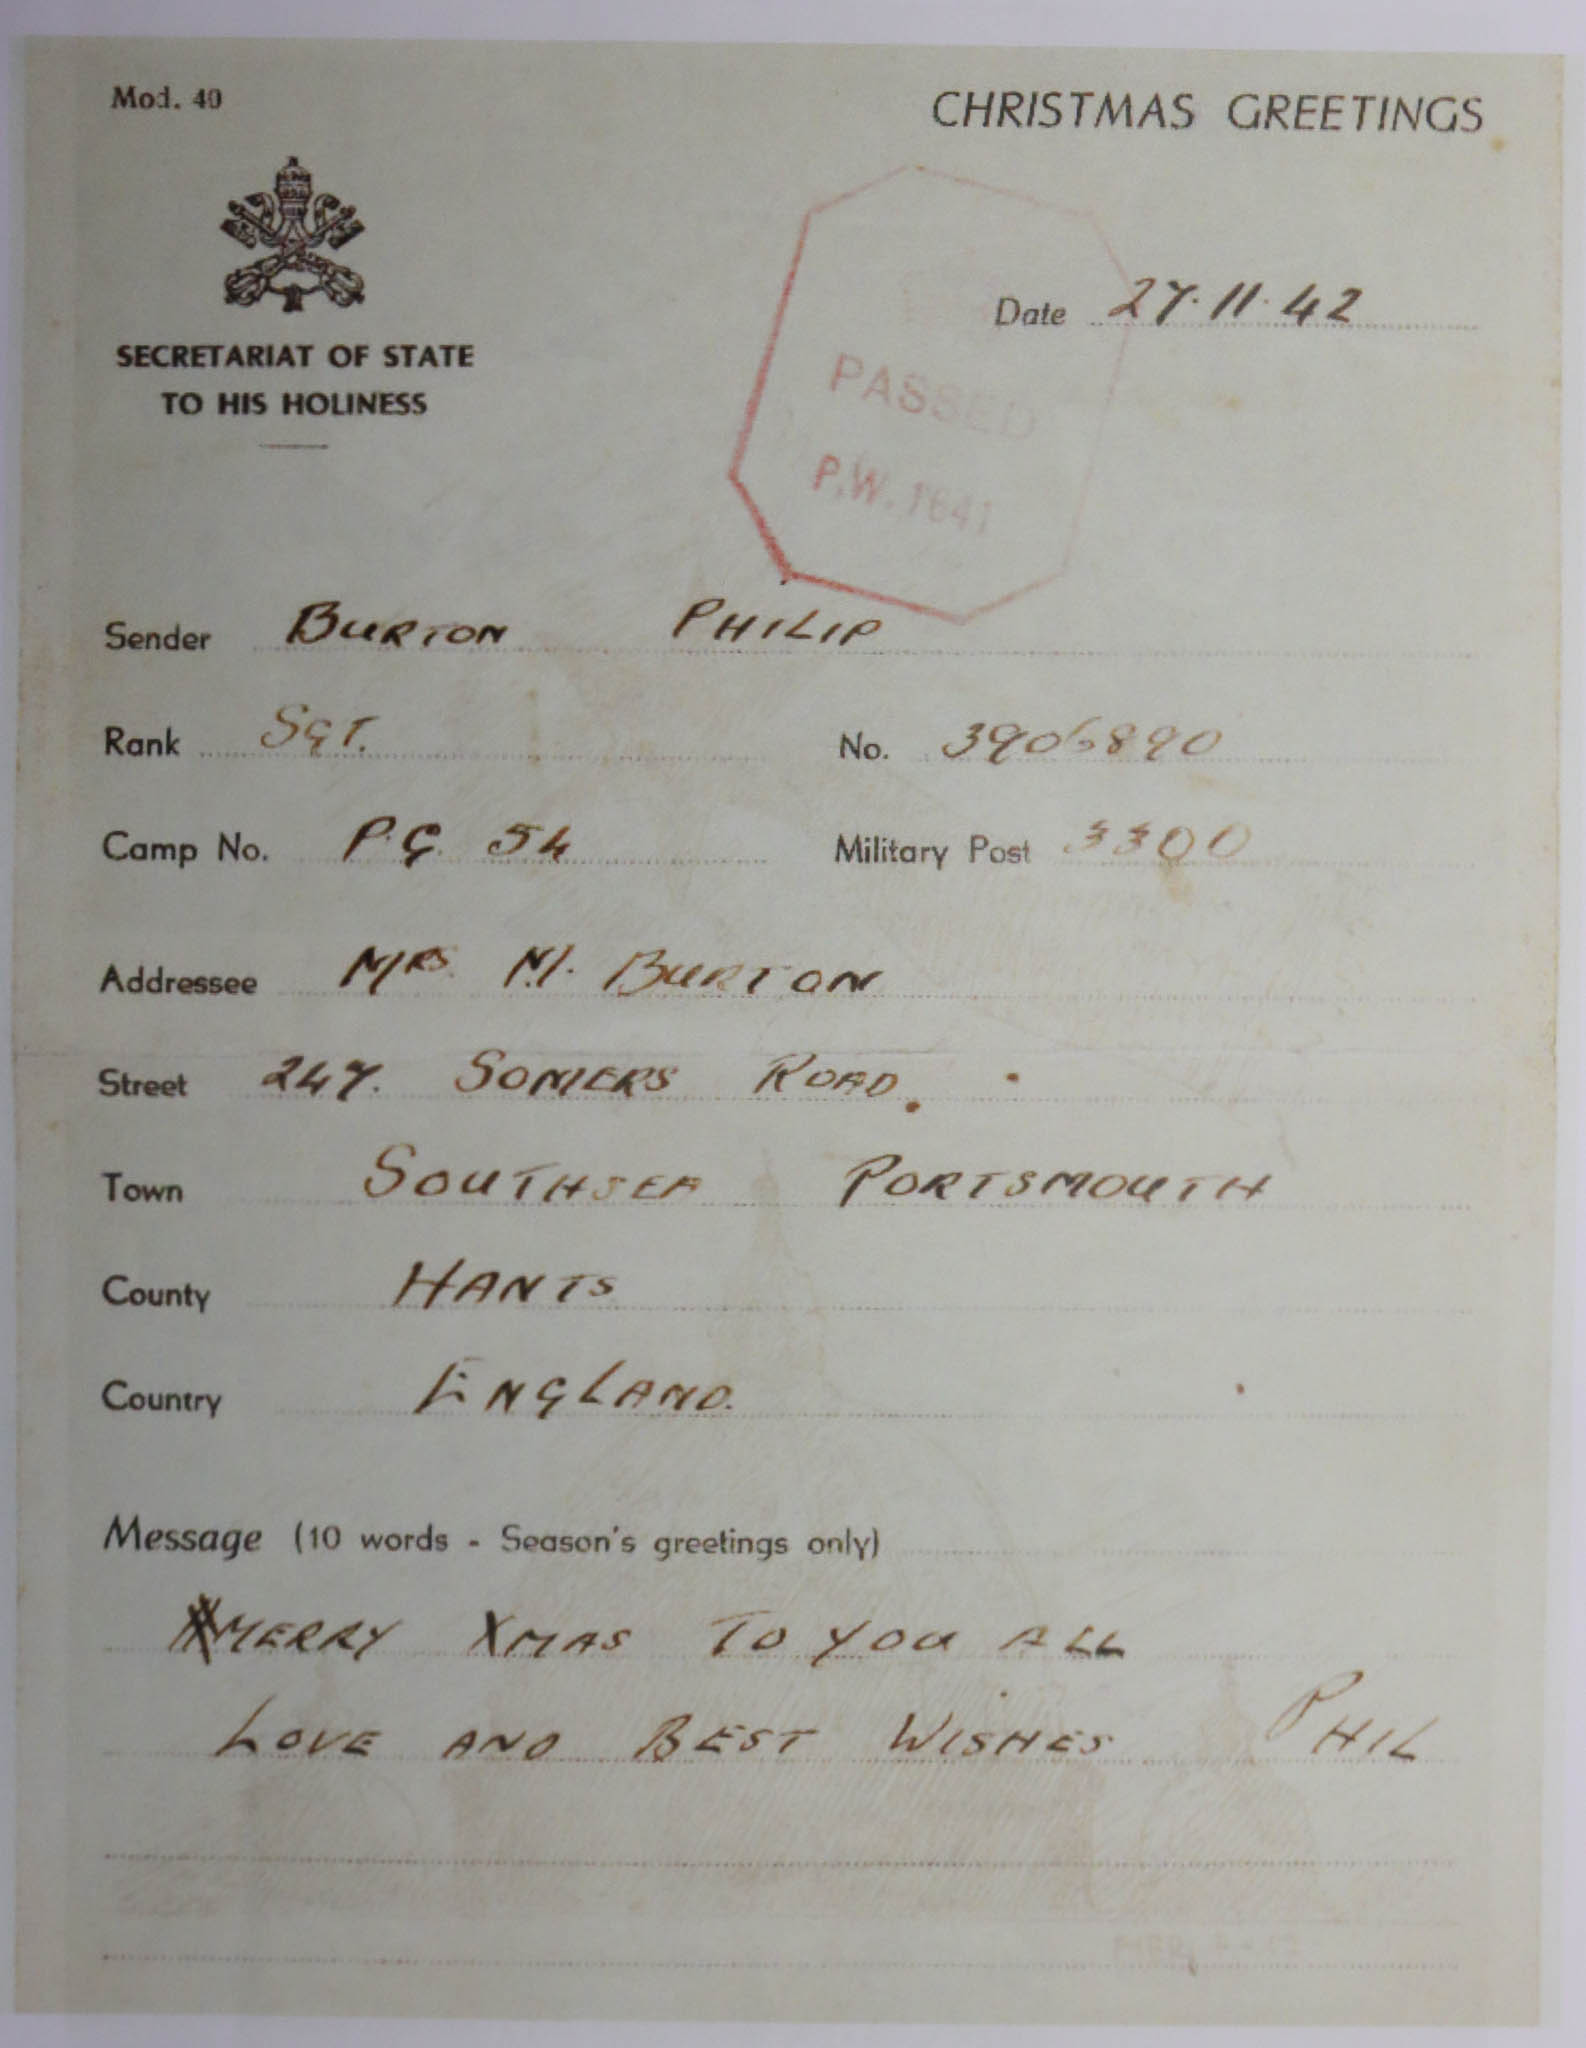 Mod. 40
CHRISTMAS GREETINGS
SECRETARIAT OF STATE
TO HIS HOLINESS
Date 27.11.42
PASSED
P.W. 1641
Sender BURTON PHILIP
Rank SGT. No. 3906890
Camp No. P.G. 54 Military Post 3300
Addressee MRS M. BURTON
Street 247. SOMERS ROAD.
Town SOUTHSEA PORTSMOUTH
County HANTS
Country ENGLAND.
Message (10 words - Season's greetings only)
MERRY XMAS TO YOU ALL
LOVE AND BEST WISHES PHIL